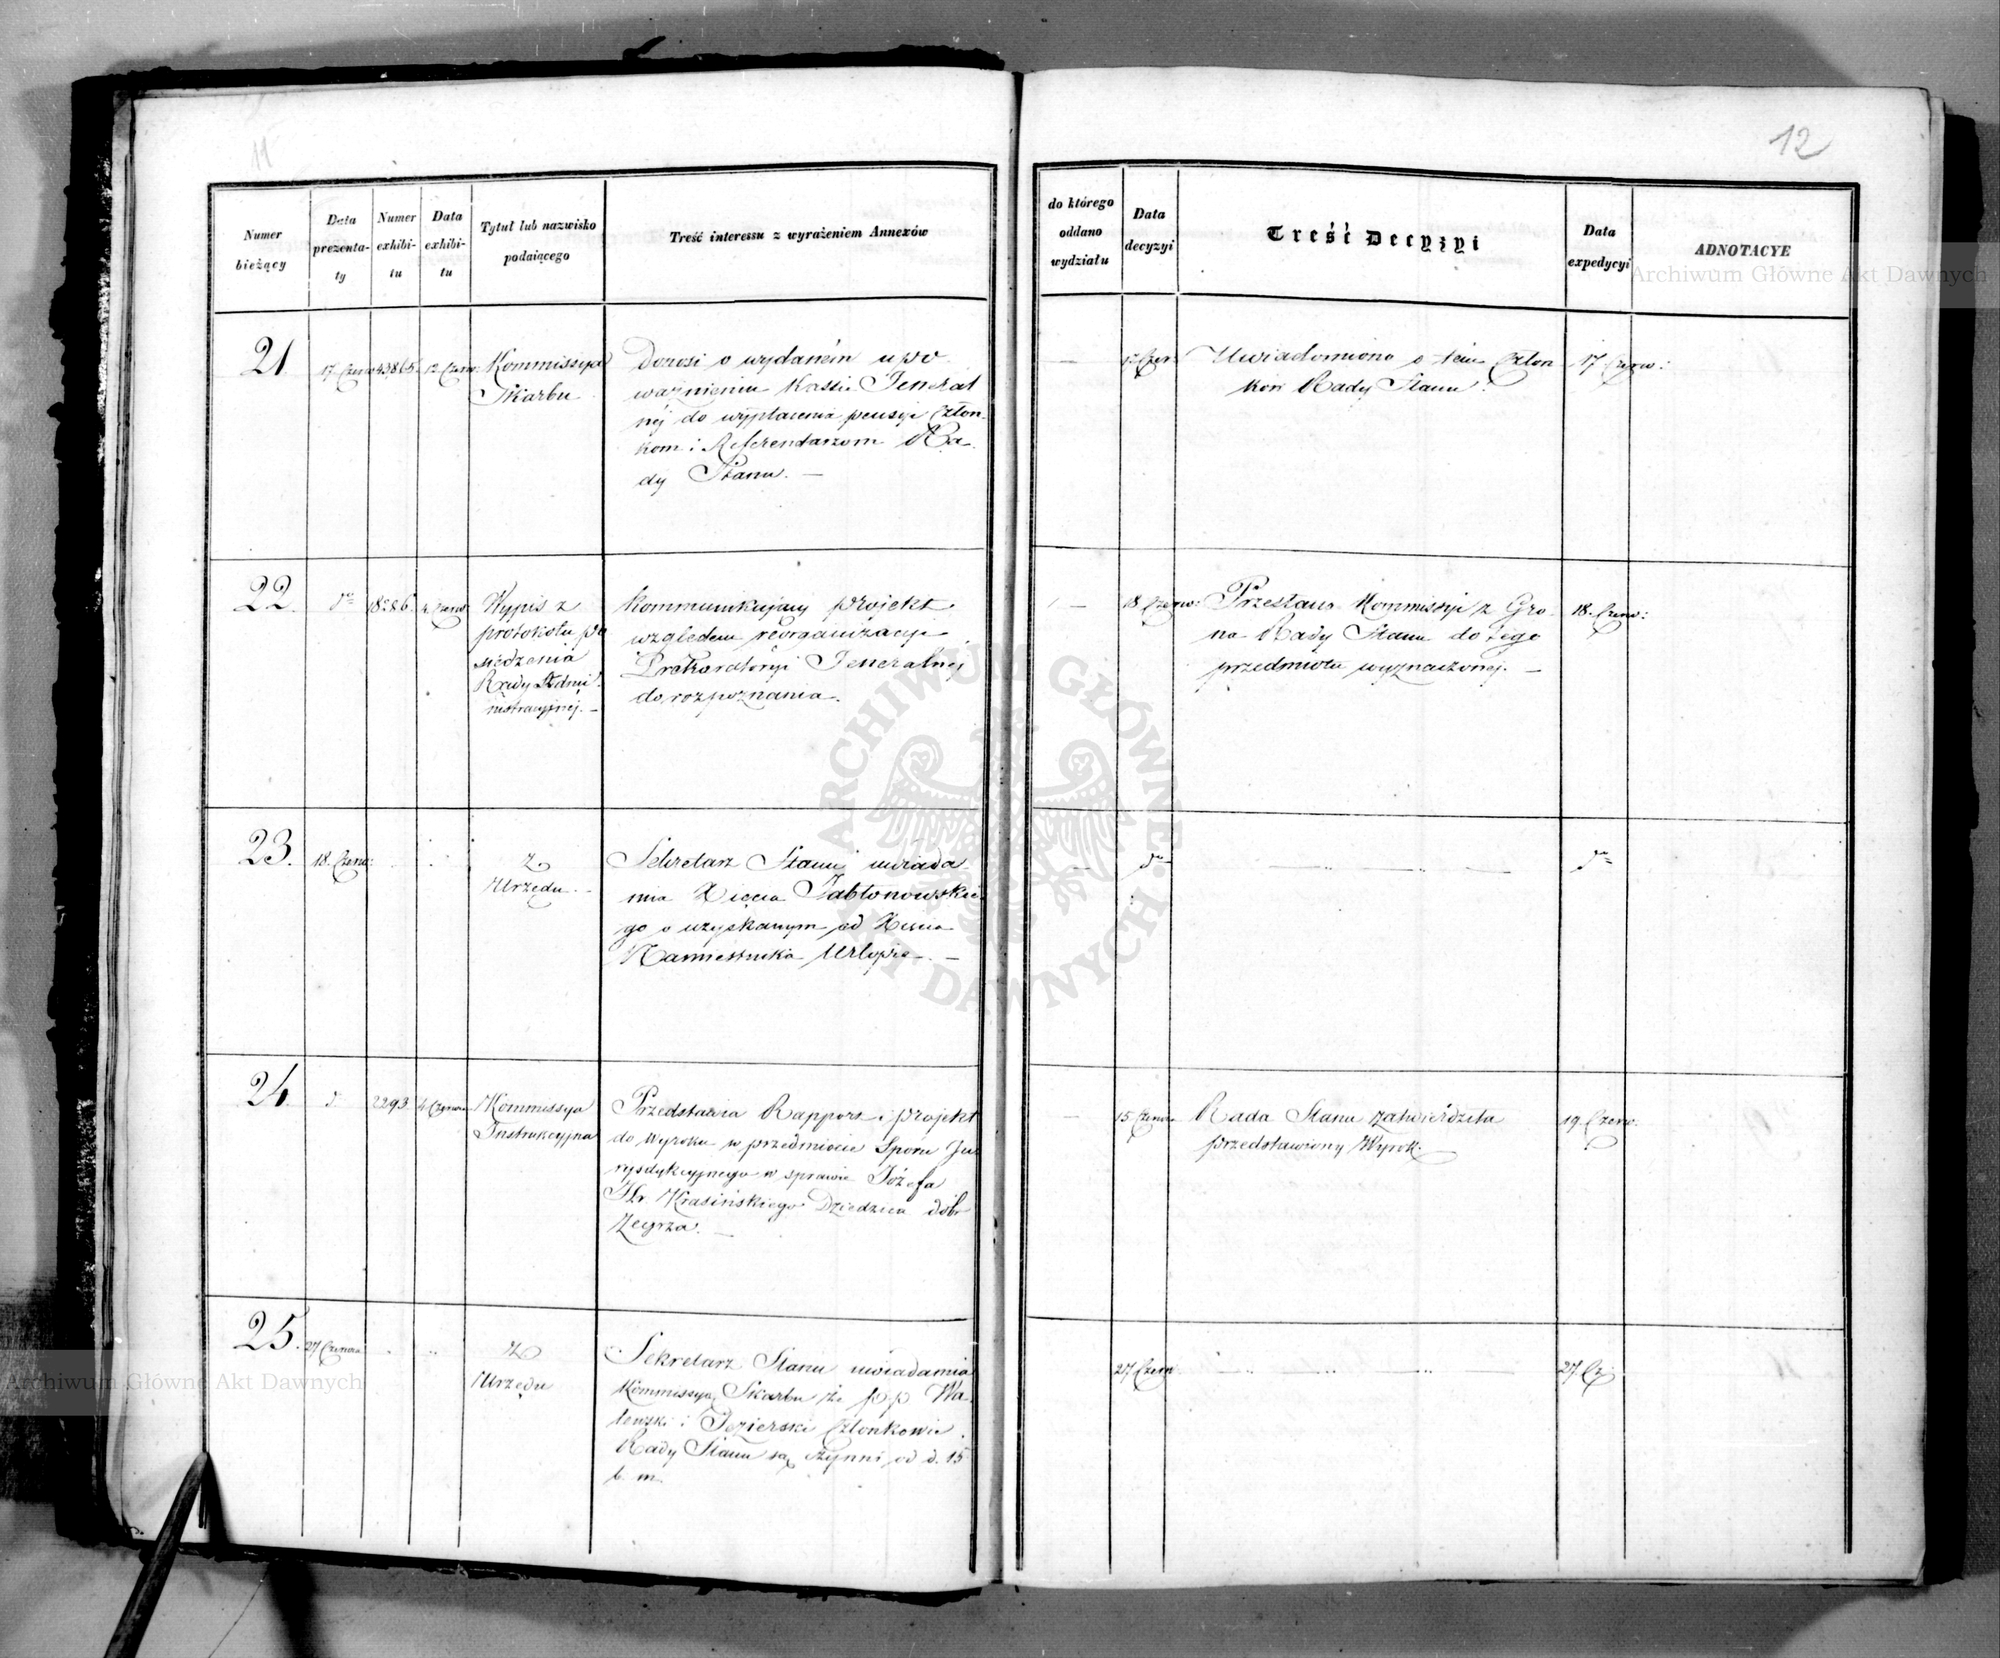 11
12
Numer
bieżący
Data
prezenta-
ty
Numer
exhibi-
tu
Data
exhibi-
tu
Tytuł lub nazwisko
podaiącego
Treść interessu z wyrażeniem Annexów
do którego
oddano
wydziału
Data
decyzyi
Treść Decyzyi
Data
expedycyi
ADNOTACYE
21.
17 Czerw
43865.
12 Czerw:
Kommissya
Skarbu
Donosi o wydaném upo
ważnieniu Kassie Jeneral
néj do wypłacenia pensyi Człon-
kom i Referendarzom Ra-
dy Stanu. —
—
17 Czer:
Uwiadomiono o tém Człon
ków Rady Stanu.
17 Czerw:
22.
do
4. Czerw
Wypis z
protokołu po
siedzenia
Rady Admi-
nistracyjnej. —
Kommunikujący projekt
względem reorganizacyi
Prokuratoryi Jeneralnej
do rozpoznania.
—
18 Czerw:
Przesłano Kommissyi z Gro-
na Rady Stanu do tego
przedmiotu wyznaczonej. —
18. Czerw:
23.
18. Czerw:
Z
Urzędu. -
Sekretarz Stanu uwiada
mia Xięcia Jabłonowskie-
go o uzyskanym od Xięcia
Namiestnika Urlopie. —
—
do
do
24.
d
2293.
4 Czerwca
Kommissya
Instrukcyjna
Przedstawia Rapport i projekt
do Wyroku w przedmiocie Sporu Ju-
rysdykcyjnego w sprawie Józefa
Hr. Krasińskiego Dziedzica dóbr
Zegrza. —
—
15 Czerwca
Rada Stanu zatwierdziła
przedstawiony Wyrok.
19. Czerw.
25.
27 Czerwca
Z
Urzędu
Sekretarz Stanu uwiadamia
Kommissyą Skarbu że p.p. Wa-
lewski i Jezierski Członkowie
Rady Stanu są czynni od d. 15
b. m.
27 Czerw
27. Cz:
Archiwum Główne Akt Dawnych
Archiwum Główne Akt Dawnych
ARCHIWUM GŁÓWNE AKT DAWNYCH